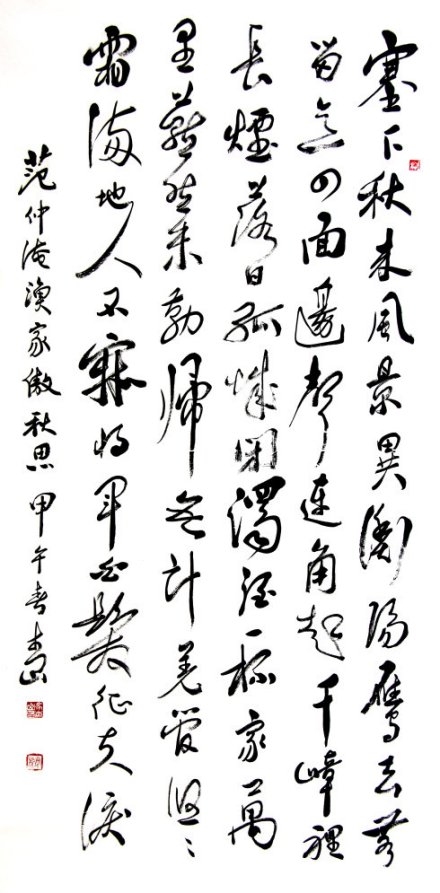 塞下秋来風景異衡陽雁去無
留意四面邊聲連角起千嶂裡
長煙落日孤城閉濁酒一杯家萬
里燕然未勒歸無計羌管悠〻
霜滿地人不寐將軍白髮征夫淚
范仲淹漁家傲秋思 甲午春